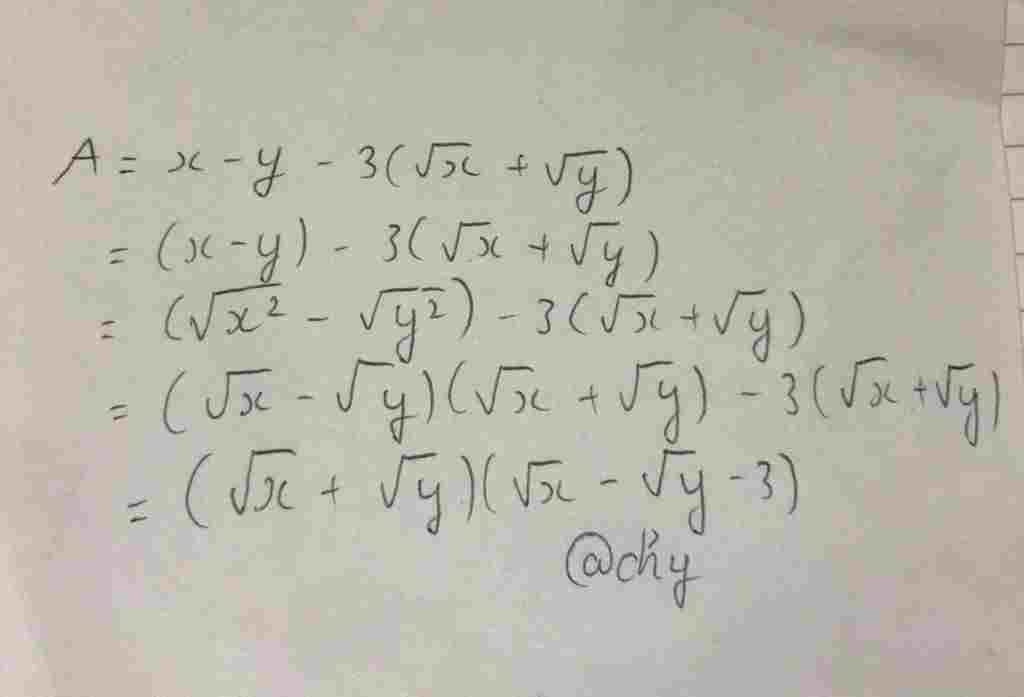 A = x - y - 3(√x + √y)
= (x - y) - 3(√x + √y)
= (√x² - √y²) - 3(√x + √y)
= (√x - √y)(√x + √y) - 3(√x + √y)
= (√x + √y)(√x - √y - 3)